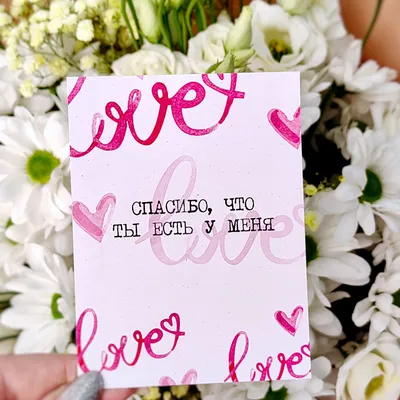 love
СПАСИБО, ЧТО
ТЫ ЕСТЬ У МЕНЯ
love
love
love